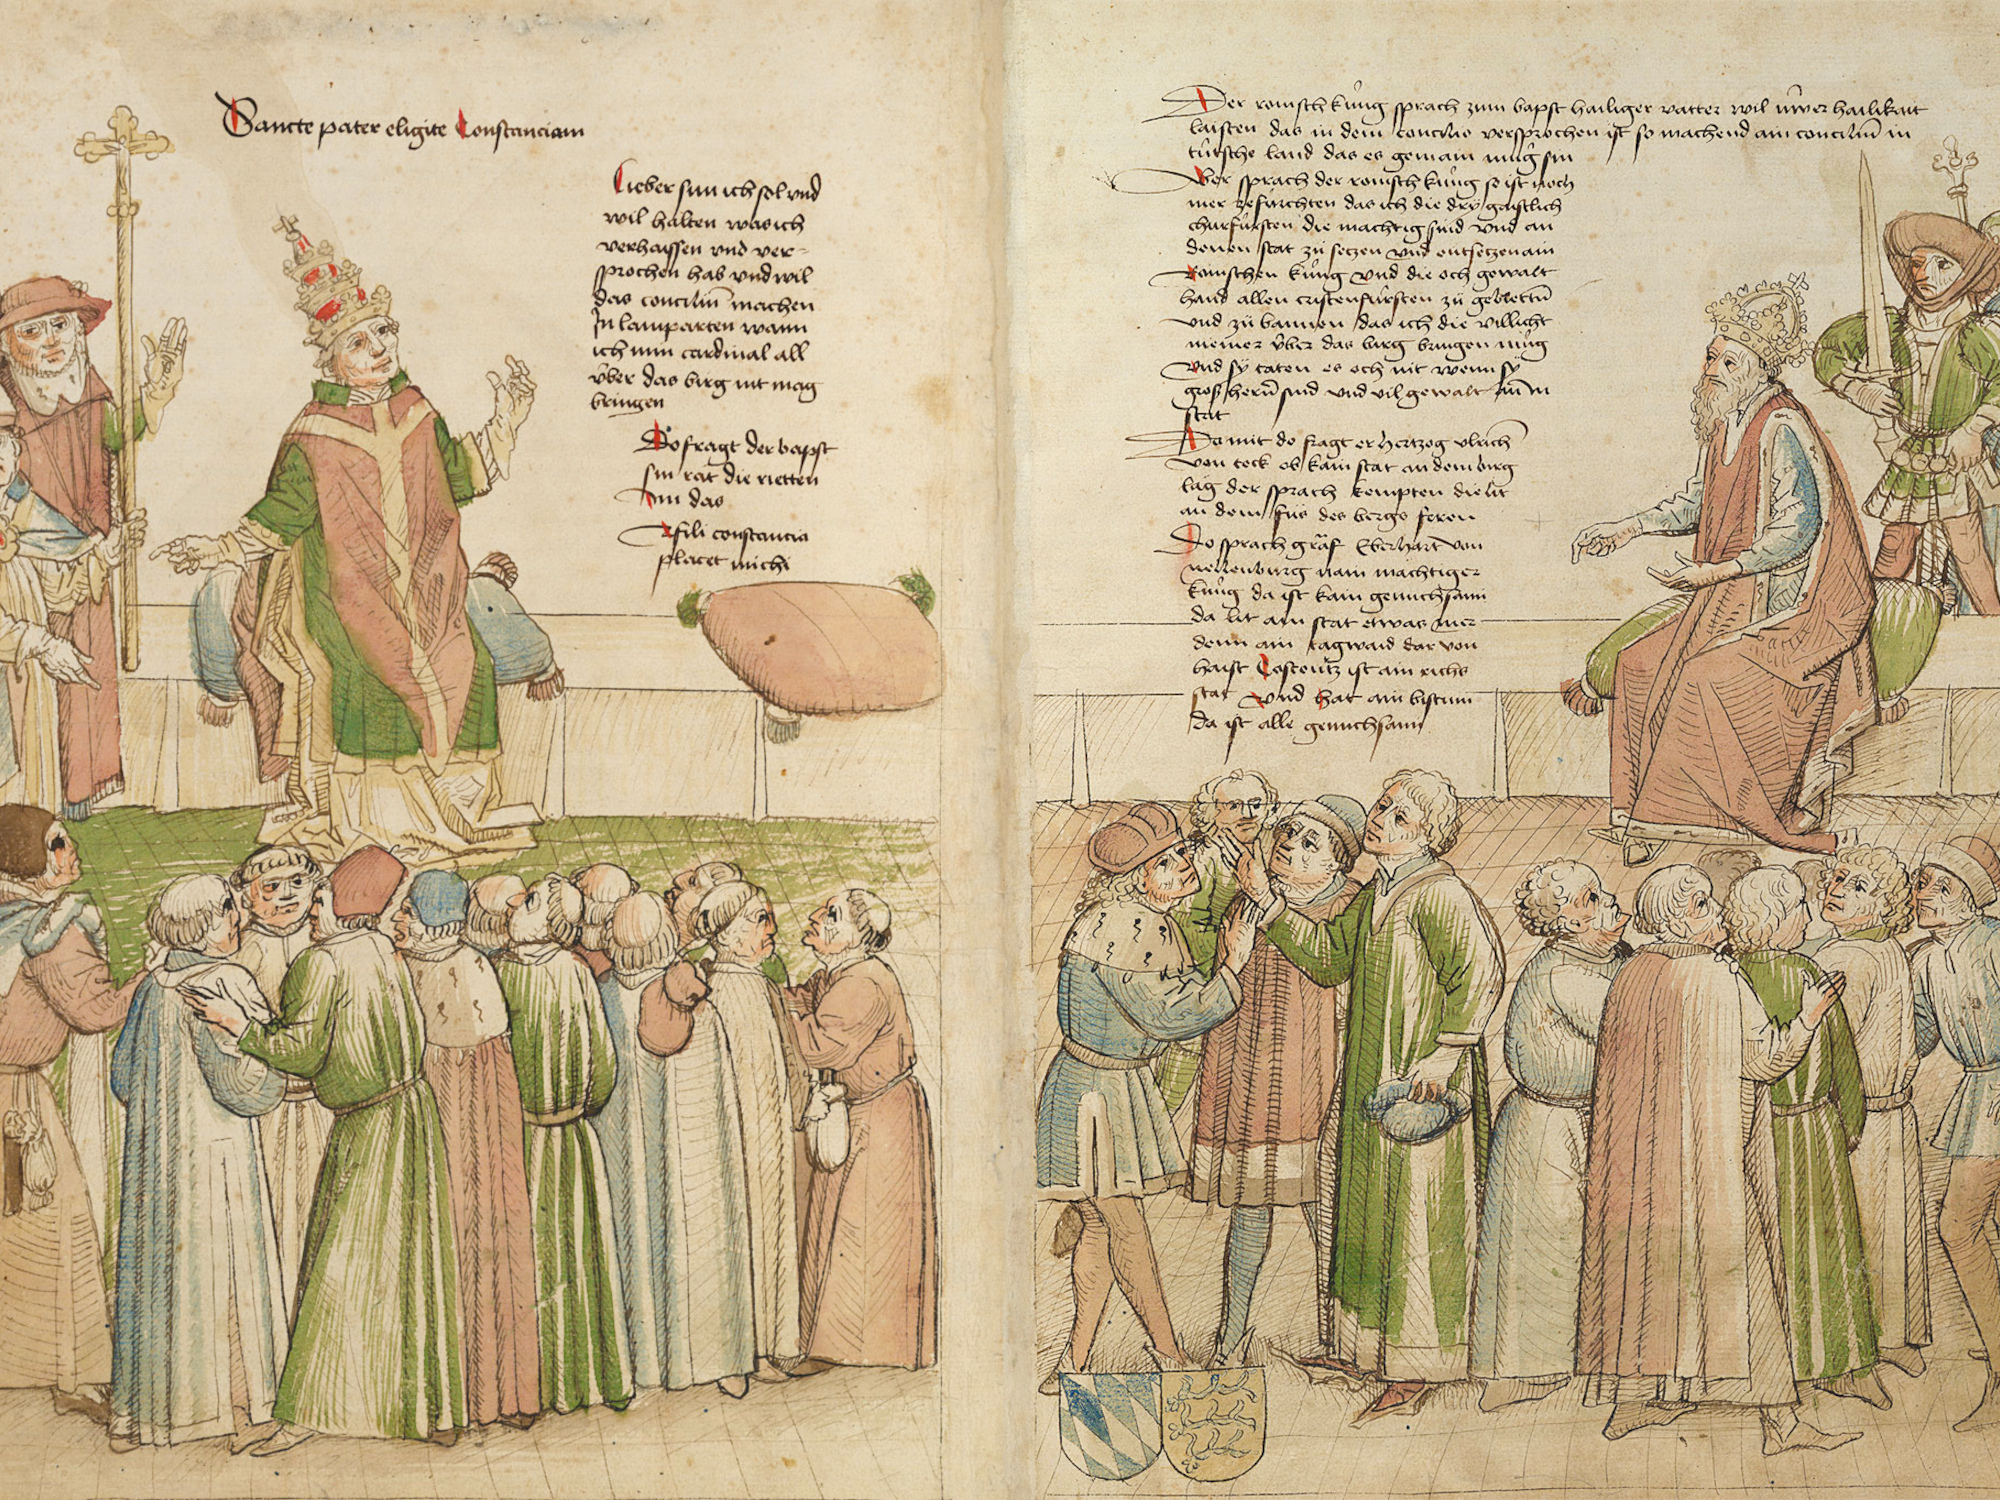 Sancte pater eligite Constanciam
Lieber sun ich sol vnd
wil halten was ich
verhaissen vnd ver-
sprochen hab vnd wil
das conciliū machen
In lamparten wann
ich min cardinal all
v̈ber das birg nit mag
bringen
Do fragt der bapst
sin rat die rietten
im das
fili constancia
placet michi
Der romisch kúng sprach zum bapst hailiger vatter wil úwer hailikait
laisten das in dem concilio versprochen ist so machend ain conciliū in
tútsche land das es gemain múg sin
Aber sprach der romisch kúng so ist noch
mer zefúrchten das ich die dry gaistlich
churfúrsten die mächtig sind vnd an
denen stat zú setzen vnd entsetzen ain
Romischen kúng vnd die och gewalt
hand allen cristenfúrsten zú gebiettū
vnd zú bannen das ich die villicht
meiner v̈ber das birg bringen múg
vnd sÿ täten es och nit wenn sÿ
groß herrn̄ sind vnd vil gewalt
stat
Da mit do fragt er hertzog vlrich
von teck ob kain stat an dem birg
läg der sprach kempten die lit
an dem fús des bergs feren
Do sprach gräf Eberhart von
nellenburg nain mächtiger
kúng da ist kain genuchsami
da lit ain stat etwas mer
denn ain tagwaid dar von
haist Costentz ist ain richs
stat vnd hat ain bistum
da ist alle genuchsami